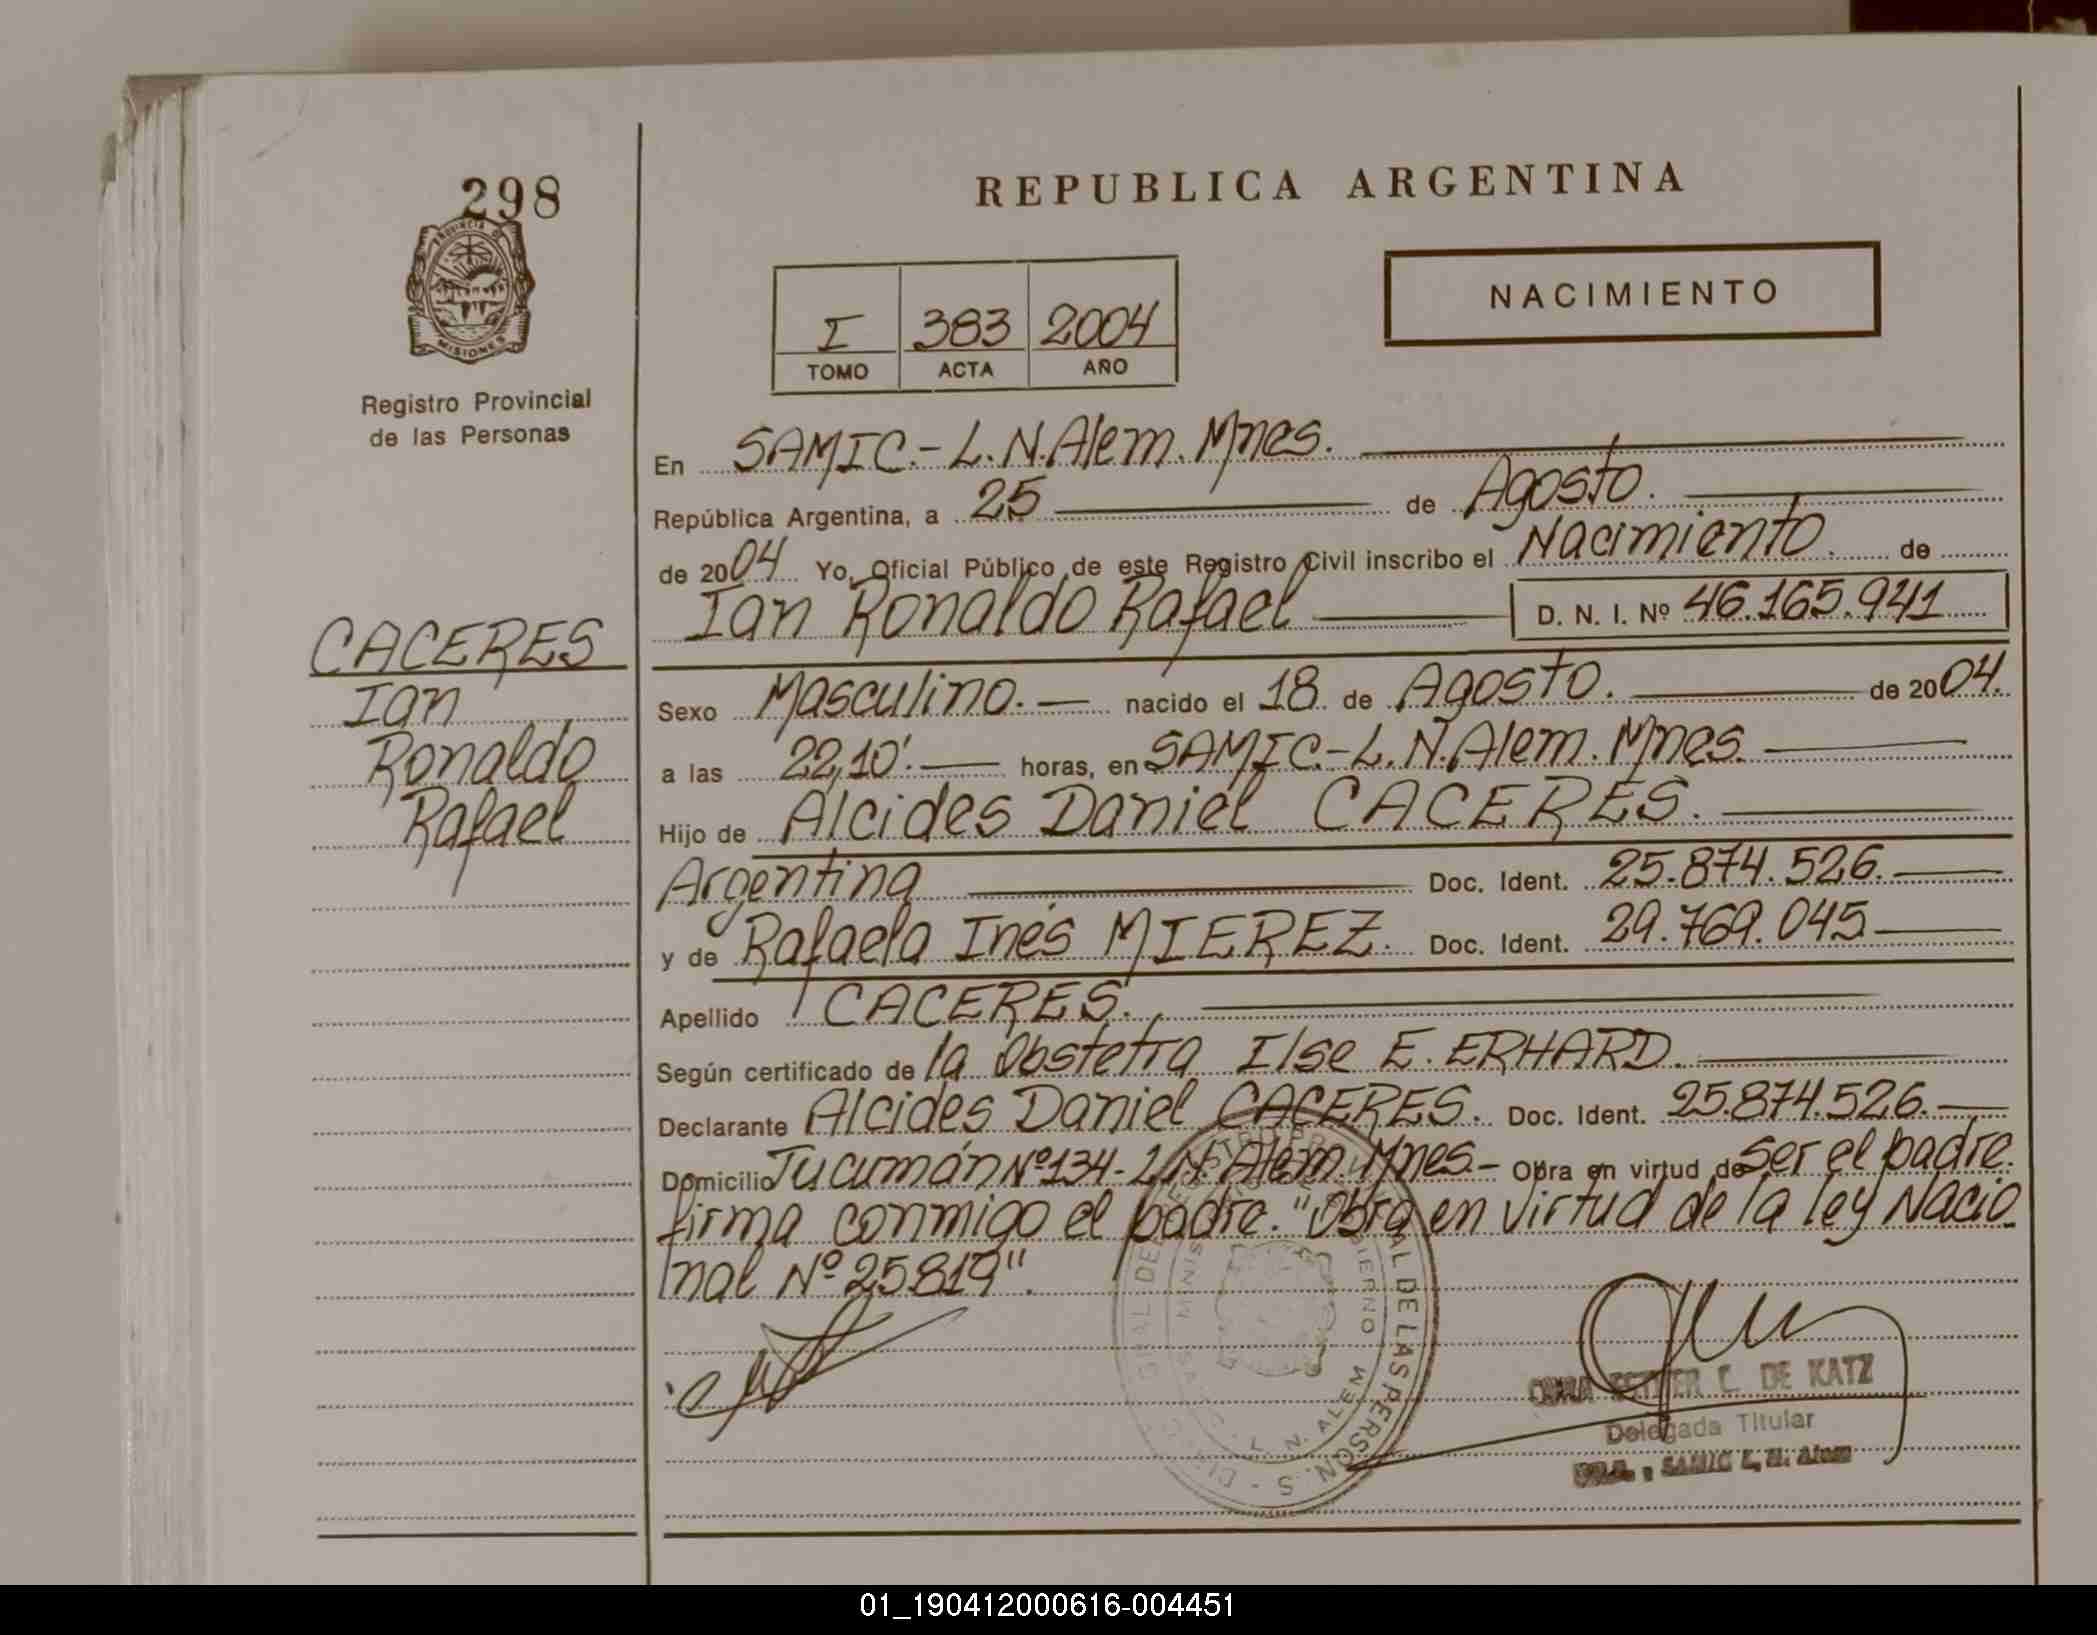 298
PROVINCIA DE
MISIONES
Registro Provincial
de las Personas
REPUBLICA ARGENTINA
NACIMIENTO
I 383 2004
TOMO ACTA AÑO
En SAMIC.- L. N. Alem. Mnes.
República Argentina, a 25 de Agosto.
de 2004 Yo, Oficial Público de este Registro Civil inscribo el Nacimiento. de
Ian Ronaldo Rafael D. N. I. Nº 46.165.941
CACERES
Ian
Ronaldo
Rafael
Sexo Masculino.- nacido el 18 de Agosto. de 2004.
a las 22,10'. horas, en SAMIC.- L. N. Alem. Mnes.
Hijo de Alcides Daniel CACERES.
Argentina Doc. Ident. 25.874.526.
y de Rafaela Inés MIEREZ. Doc. Ident. 29.769.045
Apellido CACERES.
Según certificado de la Obstetra Ilse E. ERHARD.
Declarante Alcides Daniel CACERES. Doc. Ident. 25.874.526.
Domicilio Tucumán Nº 134 - L. N. Alem. Mnes.- Obra en virtud de ser el padre.
firma conmigo el padre. "Obra en virtud de la ley Nacio
nal Nº 25819".
DE LAS PERSON
L. N. ALEM
C. DE KATZ
Delegada Titular
SAMIC L. N. Alem
01_190412000616-004451